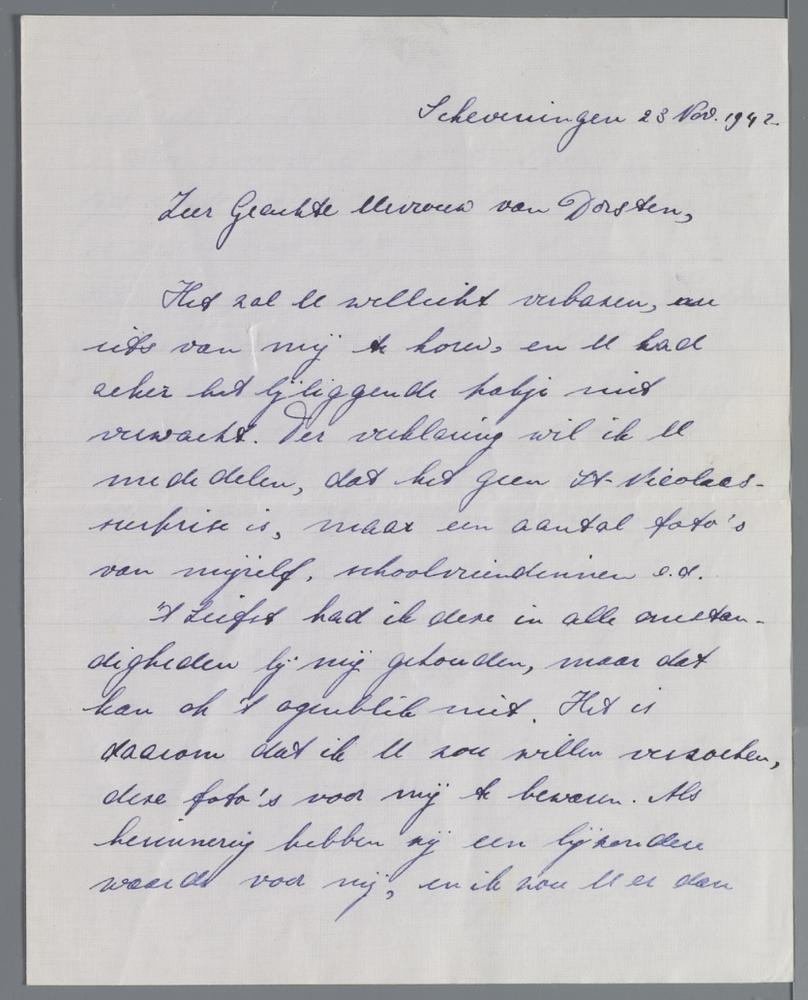 Scheveningen 23 Nov. 1942.
Zeer Geachte Mevrouw van Dorsten,
Het zal U wellicht verbazen, nu
iets van mij te horen, en U had
zeker het bijliggende pakje niet
verwacht. Ter verklaring wil ik U
mededelen, dat het geen St-Nicolaas-
surprise is, maar een aantal foto's
van mijzelf, schoolvriendinnen e.d.
't Liefst had ik deze in alle omstan-
digheden bij mij gehouden, maar dat
kan oh 't ogenblik niet. Het is
daarom dat ik U zou willen verzoeken,
deze foto's voor mij te bewaren. Als
herinnering hebben zij een bijzondere
waarde voor mij, en ik zou U er dan